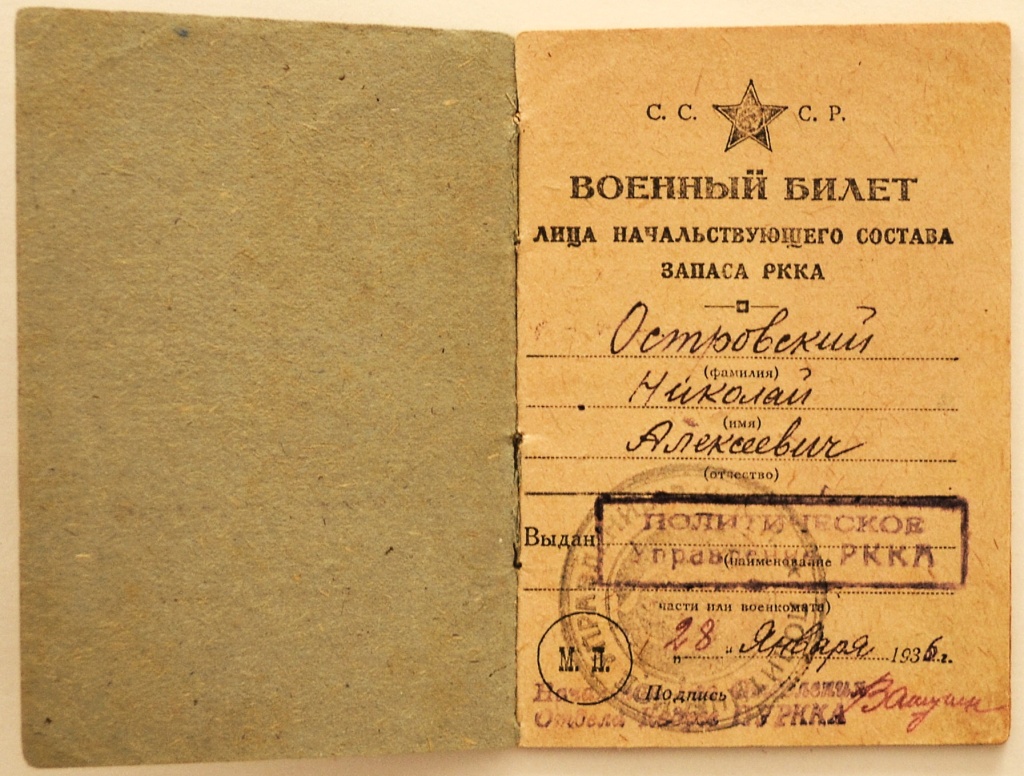 С. С. С. Р.
ВОЕННЫЙ БИЛЕТ
ЛИЦА НАЧАЛЬСТВУЮЩЕГО СОСТАВА
ЗАПАСА РККА
Островский
(фамилия)
Николай
(имя)
Алексеевич
(отчество)
ПОЛИТИЧЕСКОЕ
Выдан
Управление РККА
(наименование
части или военкомата)
"28" Января 1936 г.
М. П.
Подпись
Отдела Кадров ПУРККА